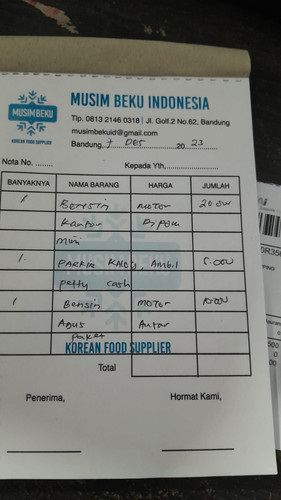 MUSIM BEKU INDONESIA
MUSIM BEKU
KOREAN FOOD SUPPLIER
Tlp. 0813 2146 0318 | Jl. Golf.2 No.62, Bandung
musimbekuid@gmail.com
Bandung, 7 DES 20 23
Nota No. ........
Kepada Yth,
BANYAKNYA NAMA BARANG HARGA JUMLAH
1 Bensin motor 20.000
Kantor
Mimi
1. PARKIR Ambil 5.000
petty cash
1 Bensin MOTOR 10.000
Agus Antar
paket
KOREAN FOOD SUPPLIER
Total
Penerima,
Hormat Kami,